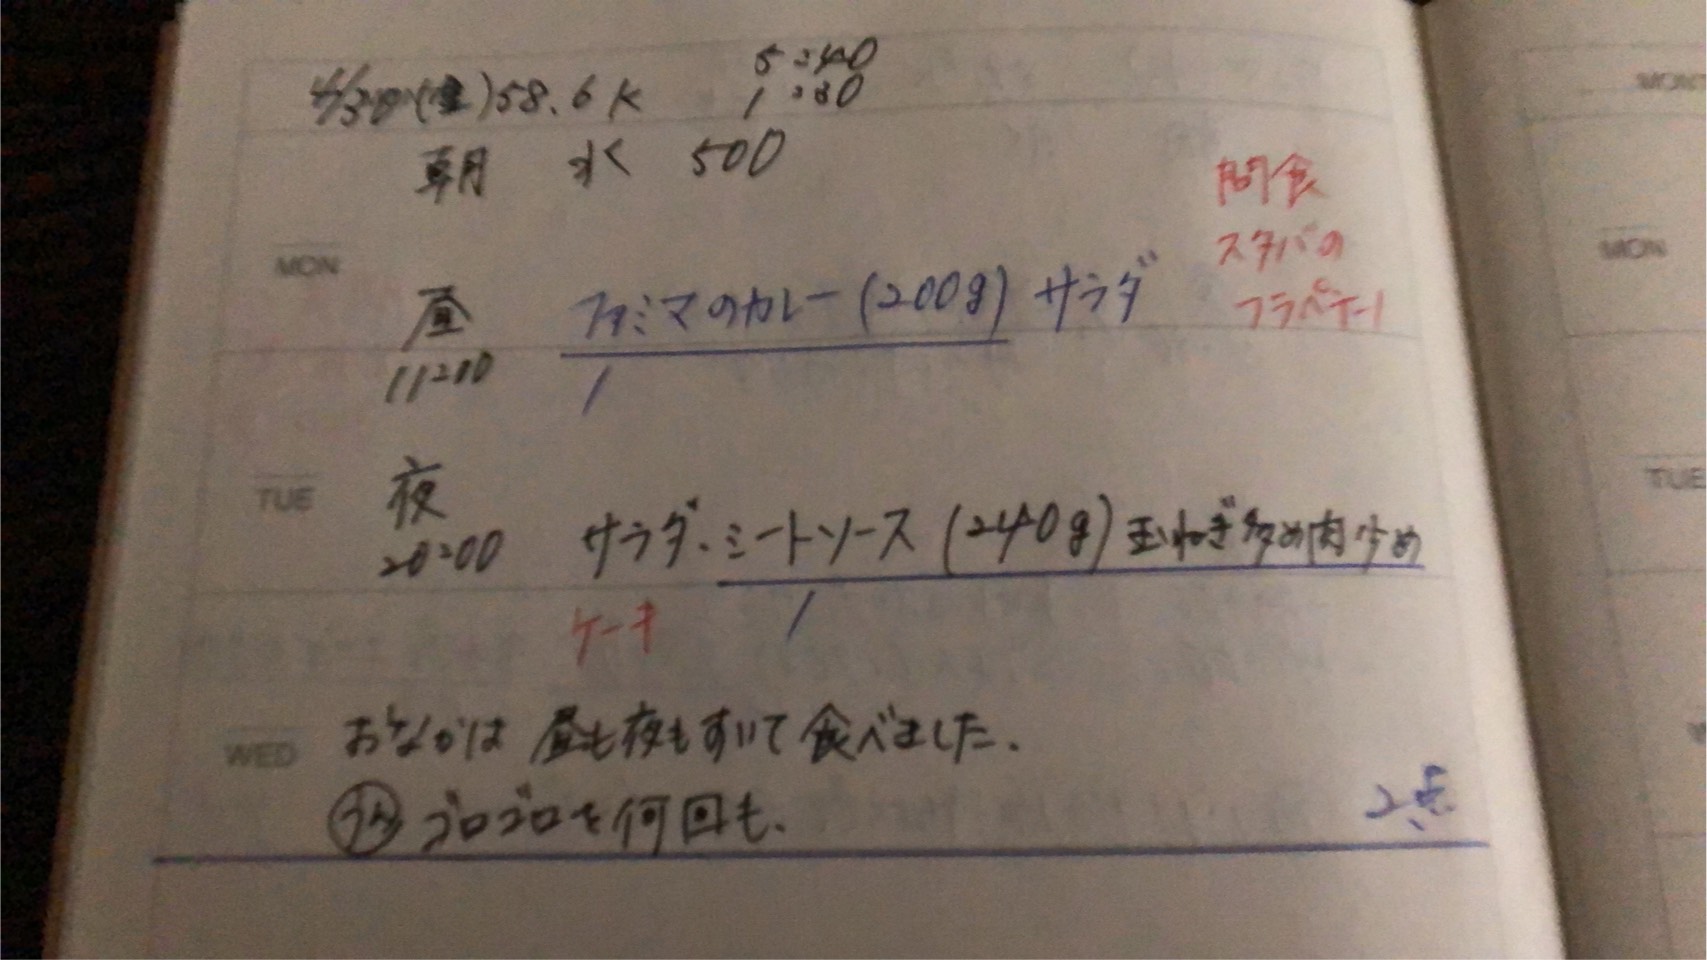 4/30(土)58.6K
5:40
1:30
朝 水 500
間食
スタバの
フラペチーノ
MON
昼 ファミマのカレー(200g) サラダ
11:00
1
TUE
夜
20:00 サラダ.ミートソース(240g)玉ねぎ多め肉少め
ケーキ
1
WED
おなかは昼も夜もすいて食べました.
ゴロゴロを何回も.
2点
MON
TUE